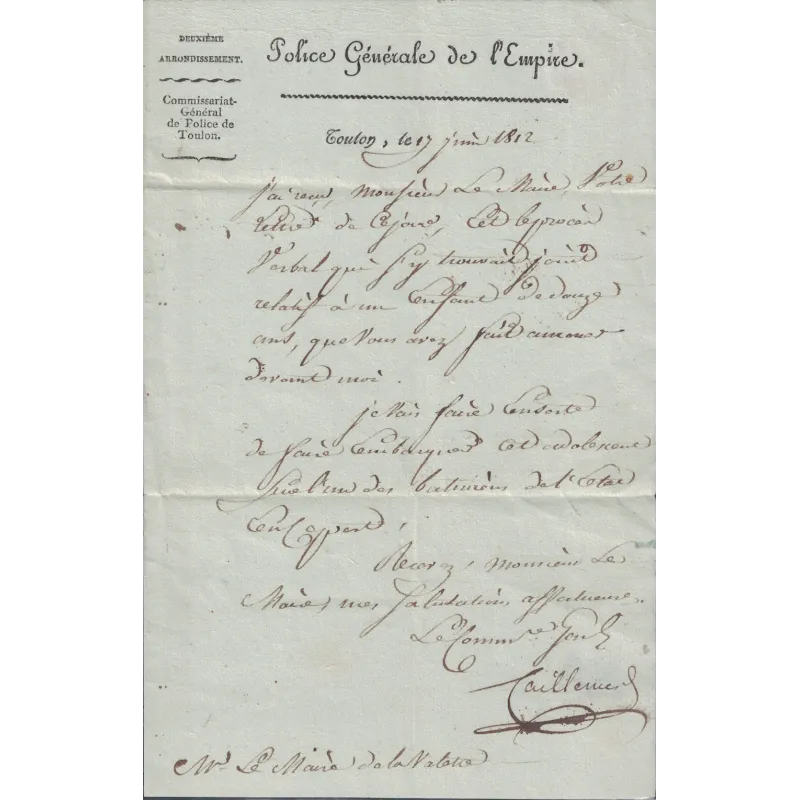 DEUXIÈME
ARRONDISSEMENT.
Commissariat-
Général
de Police de
Toulon.
Police Générale de l'Empire.
Toulon, le 17 juin 1812
j'ai reçu, Monsieur Le Maire, Votre
lettre de ce jour, et le procès
Verbal qui s'y trouvait joint
relatif à un Enfant de douze
ans, que Vous avez fait amener
devant moi.
je Vais faire Ensorte
de faire Embarquer cet adolescent
sur l'un des batimens de l'Etat
En ce port.
Recevez, Monsieur Le
Maire, mes Salutations affectueuses.
Le Commre Genl
Caillemer
Mr Le Maire de la Valette